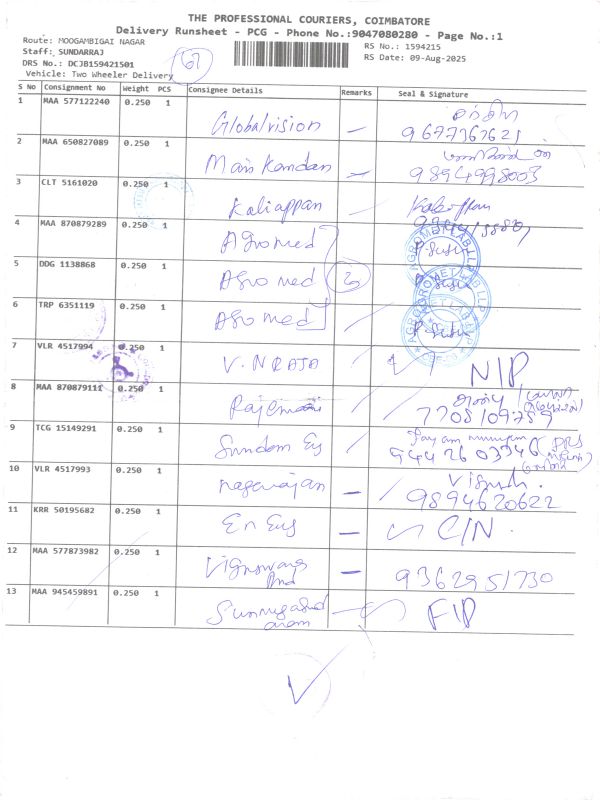 THE PROFESSIONAL COURIERS, COIMBATORE
Delivery Runsheet - PCG - Phone No.:9047080280 - Page No.:1
Route: MOOGAMBIGAI NAGAR
RS No.: 1594215
Staff: SUNDARRAJ
RS Date: 09-Aug-2025
DRS No.: DCJB159421501
Vehicle: Two Wheeler Delivery
67
S No Consignment No Weight PCS Consignee Details Remarks Seal & Signature
1 MAA 577122240 0.250 1 Globalvision
2 MAA 650827089 0.250 1 9894998003
3 CLT 5161020 0.250 1 Kaliappan
4 MAA 870879289 0.250 1 Agromed
5 DDG 1138868 0.250 1 Agromed 3
6 TRP 6351119 0.250 1 Agromed
7 VLR 4517994 0.250 1 V.N RAJA NIP
8 MAA 870879111 0.250 1 7708109789
9 TCG 15149291 0.250 1 Sundam
10 VLR 4517993 0.250 1 nagarajan 9894620622
11 KRR 50195682 0.250 1 C/N.
12 MAA 577873982 0.250 1 9362951730
13 MAA 945459891 0.250 1 FIP